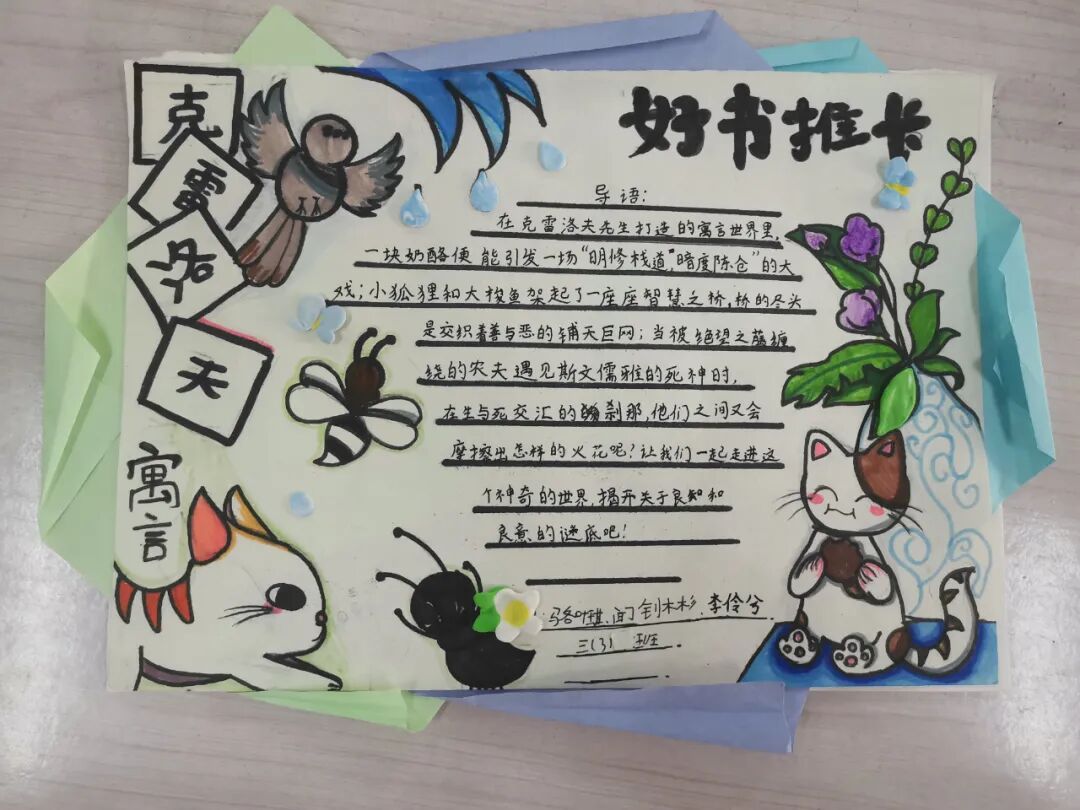 克
雷
洛
夫
寓
言
好书推卡
导语：
在克雷洛夫先生打造的寓言世界里，
一块奶酪便能引发一场“明修栈道，暗度陈仓”的大
戏；小狐狸和大梭鱼架起了一座座智慧之桥，桥的尽头
是交织着善与恶的铺天巨网；当被绝望之藤缠
绕的农夫遇见斯文儒雅的死神时，
在生与死交汇的刹那，他们之间又会
摩擦出怎样的火花呢？让我们一起走进这
个神奇的世界，揭开关于良知和
良意的谜底吧！
李伶兮
三(3)班